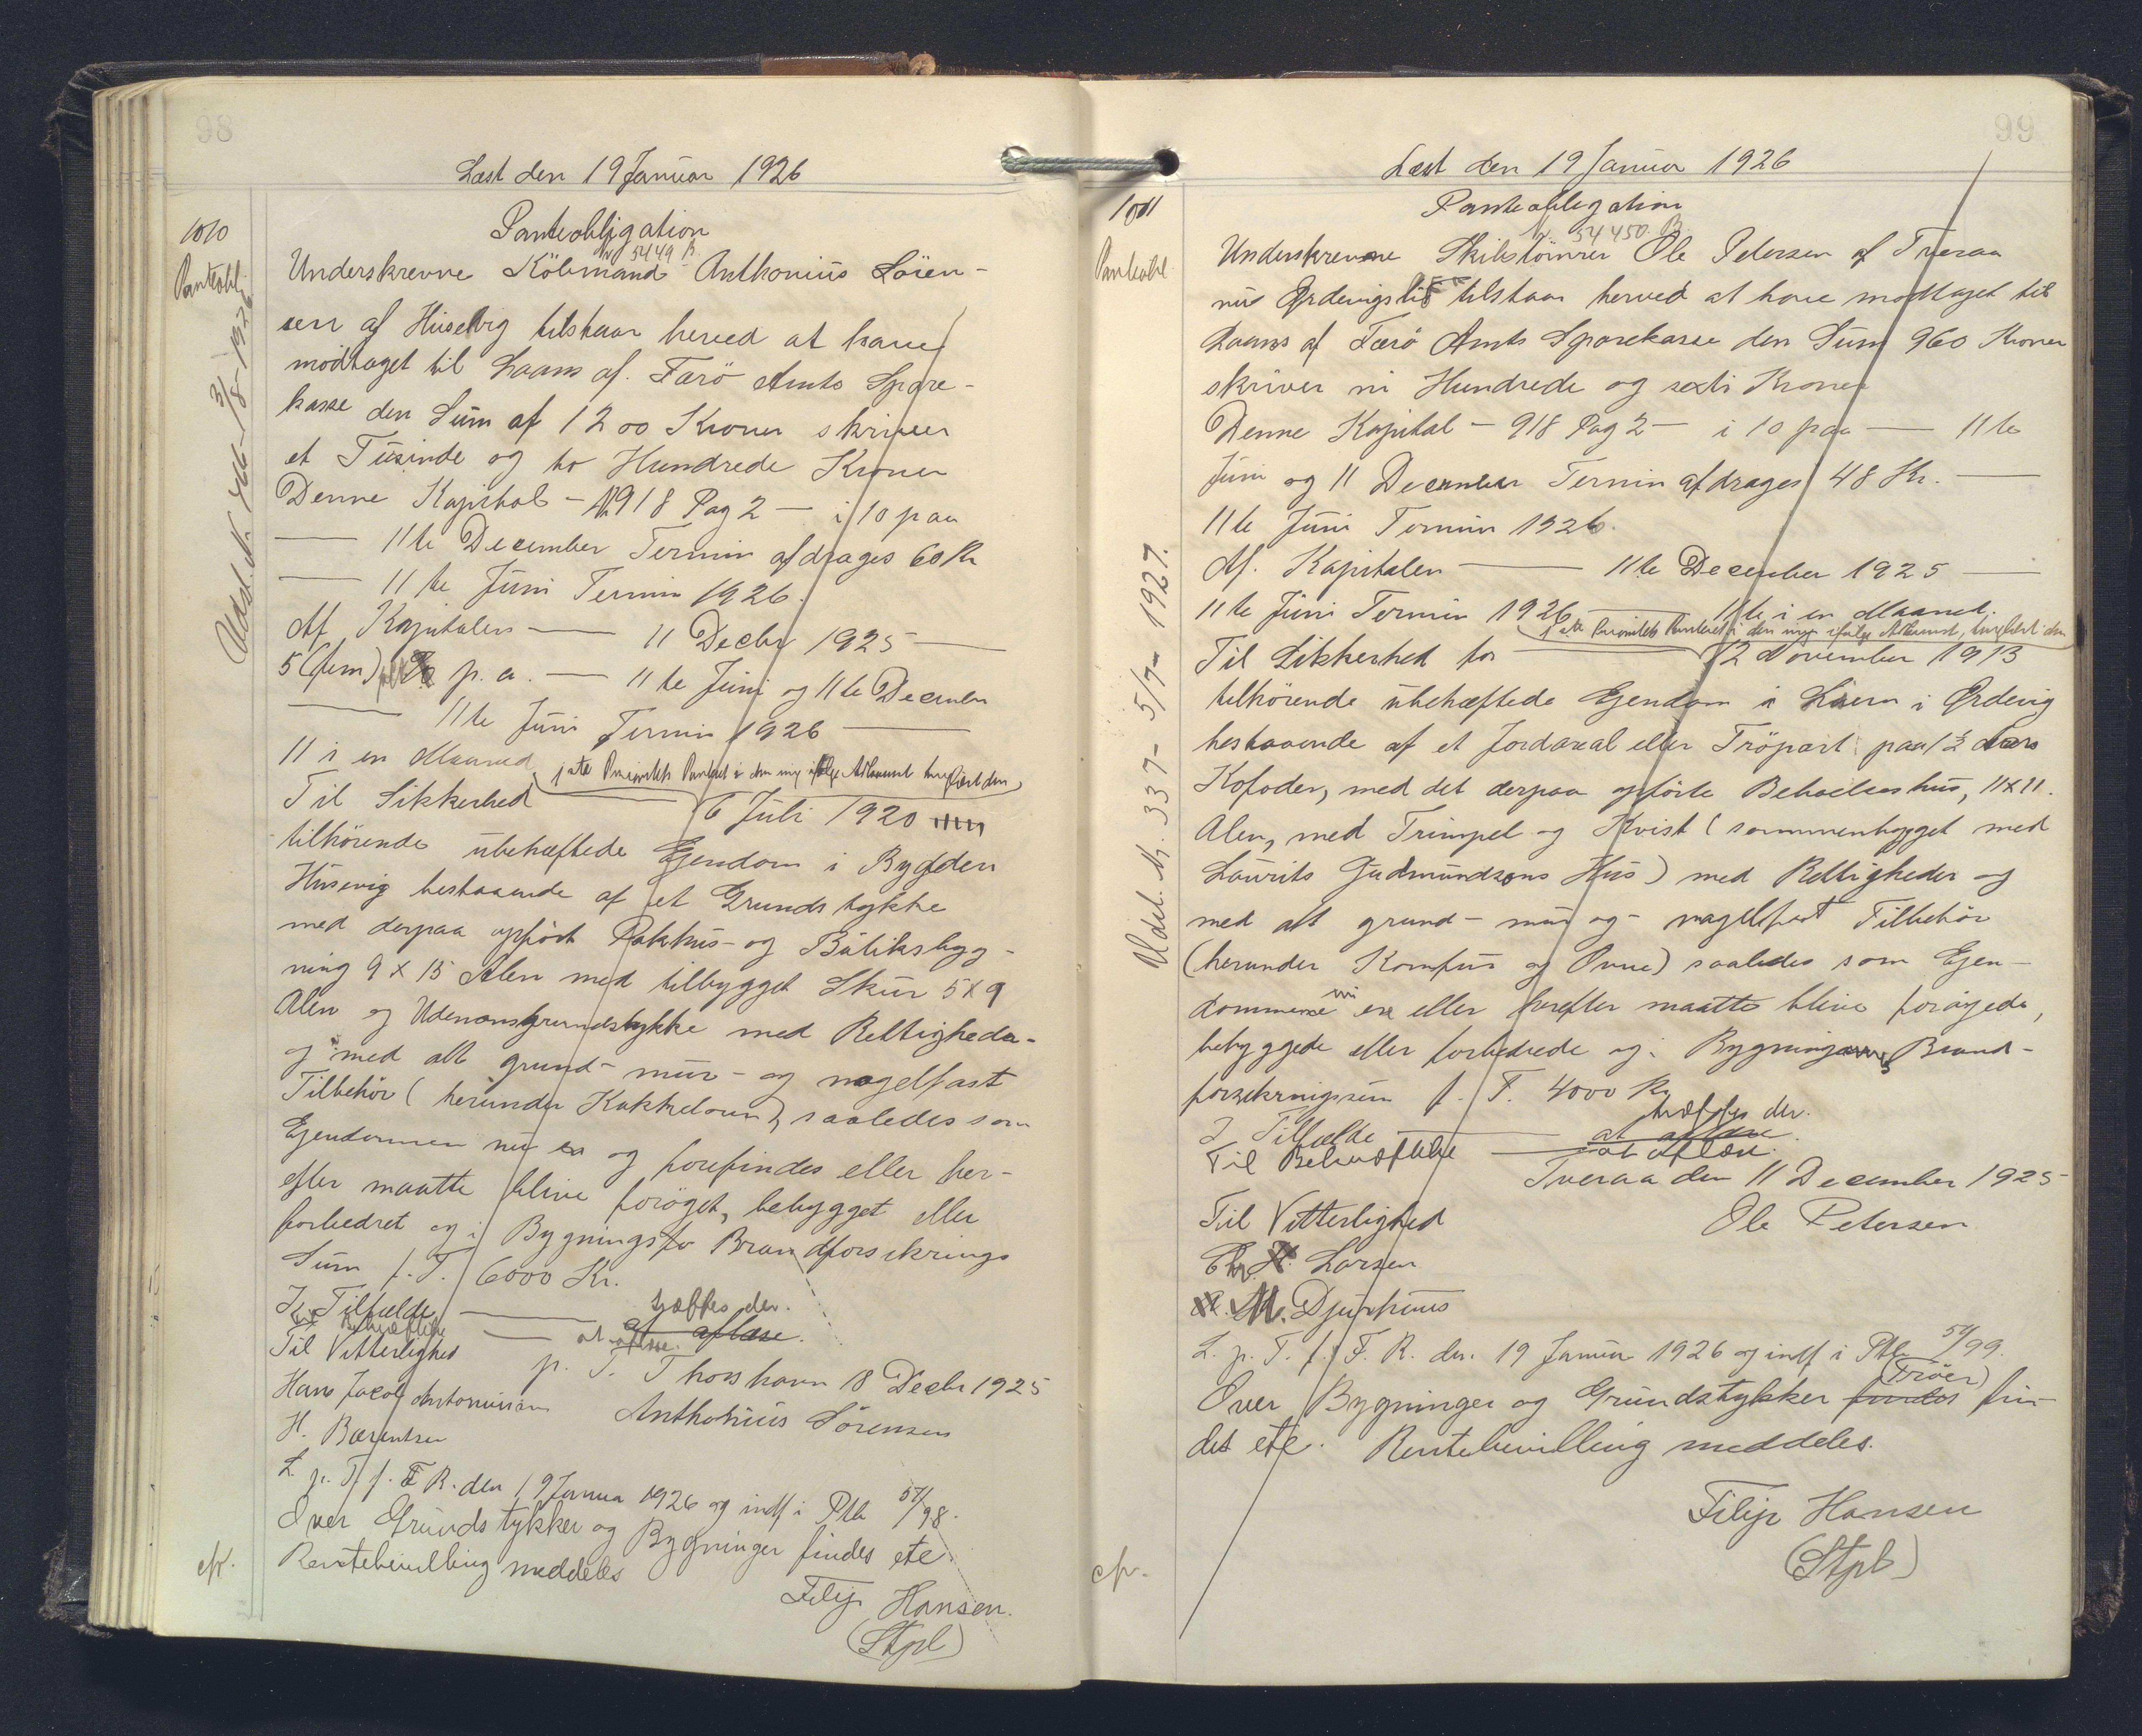 98
Læst den 19 Januar 1926
1010
Panteobl.
Panteobligation
5449 B.
Underskrevne Köbmand Anthonius Sören-
sen af Husevig tilstaar herved at have
modtaget til Laans af Færö Amts Spare-
kasse den Sum af 1200 Kroner skriver
et Tusinde og to Hundrede Kroner
Denne Kapital - 918 Pag 2 - i 10 paa
- 11te December Termin afdrages 60 Kr
- 11te Juni Termin 1926.
Af Kapitalen - 11 Decbr 1925 -
5 (fem) % p. a. - 11te Juni og 11te December
- 11te Juni Termin 1926 -
11 i en Maaned
1ste Prioritets Panteret i den mig ifølge Adkomst tinglæst den
Til Sikkerhed - 6 Juli 1920
tilhörende ubehæftede Ejendom i Bygden
Husevig bestaaende af et Grundstykke
med derpaa opfört Pakhus- og Butiksbyg-
ning 9 x 15 Alen med tilbygget Skur 5 x 9
Alen og Udenomsgrundstykke med Rettigheder
og med alt grund- mur- og nagelfast
Tilbehör (herunder Kakkelovn), saaledes som
Ejendommen nu er og forefindes eller her-
efter maatte blive foröget, bebygget eller
forbedret og i Bygnings Brandforsikrings
Sum p. T. 6000 Kr.
I Tilfælde - træffes der.
Til Bekræftelse - at aflæse.
Til Vitterlighed p. T. Thorshavn 18 Decbr 1925
Hans Jacob Antoniussen Anthonius Sörensen
H. Bærentsen
L. p. T. f. F. R. den 19 Januar 1926 og indf i Ptb 51/98.
Over Grundstykker og Bygninger findes etc
Rentebevilling meddeles
Filip Hansen.
(Stpl)
cfr.
99
Læst den 19 Januar 1926
1011
Panteobl
Panteobligation
54450 B.
Underskrevne Skibstömrer Ole Petersen af Tveraa
nu Ördevig tilstaar herved at have modtaget til
Laans af Færö Amts Sparekasse den Sum 960 Kroner
skriver ni Hundrede og sexti Kroner
Denne Kapital - 918 Pag 2 - i 10 paa - 11te
Juni og 11 December Termin afdrages 48 Kr. -
11te Juni Termin 1926.
Af Kapitalen - 11te December 1925 -
11te Juni Termin 1926 - 11te i en Maaned.
1ste Prioritets Panteret i den mig ifølge Adkomst, tinglæst den
Til Sikkerhed for - 12 November 1913
tilhörende ubehæftede Ejendom i Ördevig
bestaaende af et Jordareal eller Tröpart paa 1½ Aars
Kofoder, med det derpaa opförte Beboelseshus, 11x11.
Alen, med Trumpel og Kvist (sammenbygget med
Laurits Gudmundsens Hus) med Rettigheder og
med alt grund- mur og- nagelfast Tilbehör
(herunder Komfur og Ovne) saaledes som Ejen-
dommene nu ere eller herefter maatte blive forögede,
bebyggede eller forbedrede og i Bygningens Brand-
forsikringssum p. T. 4000 Kr
I Tilfælde - træffes der.
Til Bekræftelse - at aflæse.
Tveraa den 11 December 1925
Til Vitterlighed Ole Petersen
Chr. Larsen
M. Djurhuus
L. p. T. f. F. R. den 19 Januar 1926 og indf i Ptb 51/99.
(Tröer)
Over Bygninger og Grundstykker findes fin-
des etc. Rentebevilling meddeles.
Filip Hansen
(Stpl)
cfr.
Udsl. Nr. 337 - 5/7 - 1927.